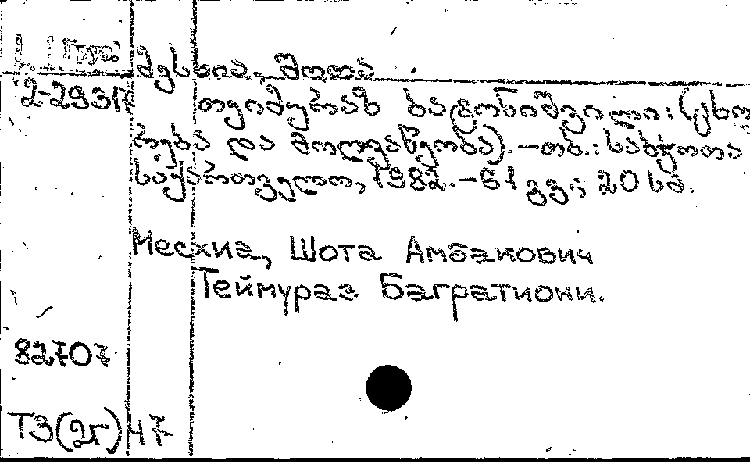 Груз
მესხია, შოთა
2-29317
თეიმურაზ ბატონიშვილი: (ცხოვ
რება და მოღვაწეობა). – თბ.: საბჭოთა
საქართველო, 1982. – 61 გვ; 20 სმ.
Месхиа, Шота Амбакович
Теймураз Багратиони.
82707
Т3(2Г)47